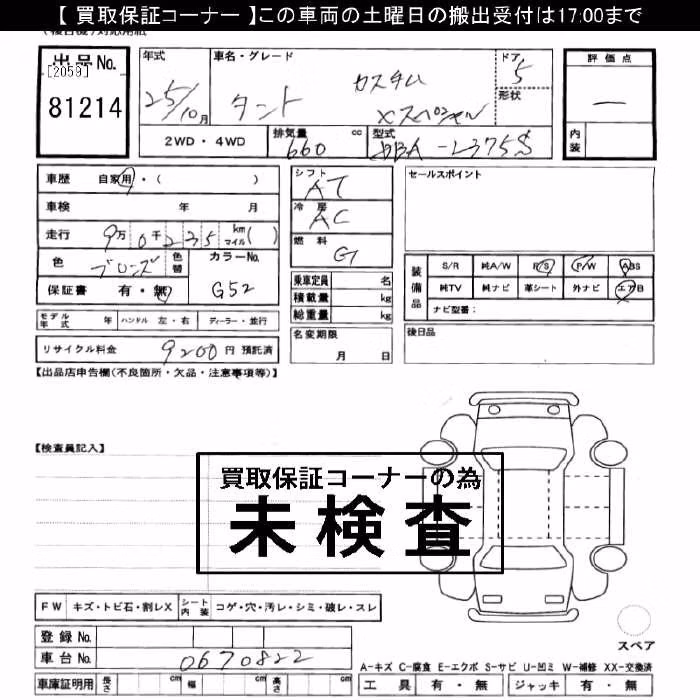 【 買取保証コーナー 】この車両の土曜日の搬出受付は17:00まで
出品No.
[2059]
81214
年式
25/10月
車名・グレード
タント カスタム
Xスペシャル
ドア
5
形状
評価点
—
内装
2WD・4WD
排気量 cc
660
型式
DBA-L375S
車歴 自家用・( )
車検 年 月
走行 9万0千235 km マイル( )
色 ブロンズ 色替
カラーNo.
G52
保証書 有・無
シフト
AT
冷房
AC
燃料
G
乗車定員 名
積載量 kg
総重量 kg
セールスポイント
装備品
S/R 純A/W P/S P/W ABS
純TV 純ナビ 革シート 外ナビ エアB
ナビ型番:
モデル年式 年 ハンドル 左・右 ディーラー・並行
名変期限
月 日
後日品
リサイクル料金 9200円 預託済
【出品店申告欄(不良箇所・欠品・注意事項等)】
【検査員記入】
買取保証コーナーの為
未検査
FW キズ・トビ石・割レX シート内装 コゲ・穴・汚レ・シミ・破レ・スレ
登録No.
車台No. 0670822
車庫証明用 長さ cm 幅 cm 高さ cm
スペア
A-キズ C-腐食 E-エクボ S-サビ U-凹ミ W-補修 XX-交換済
工具 有・無 ジャッキ 有・無